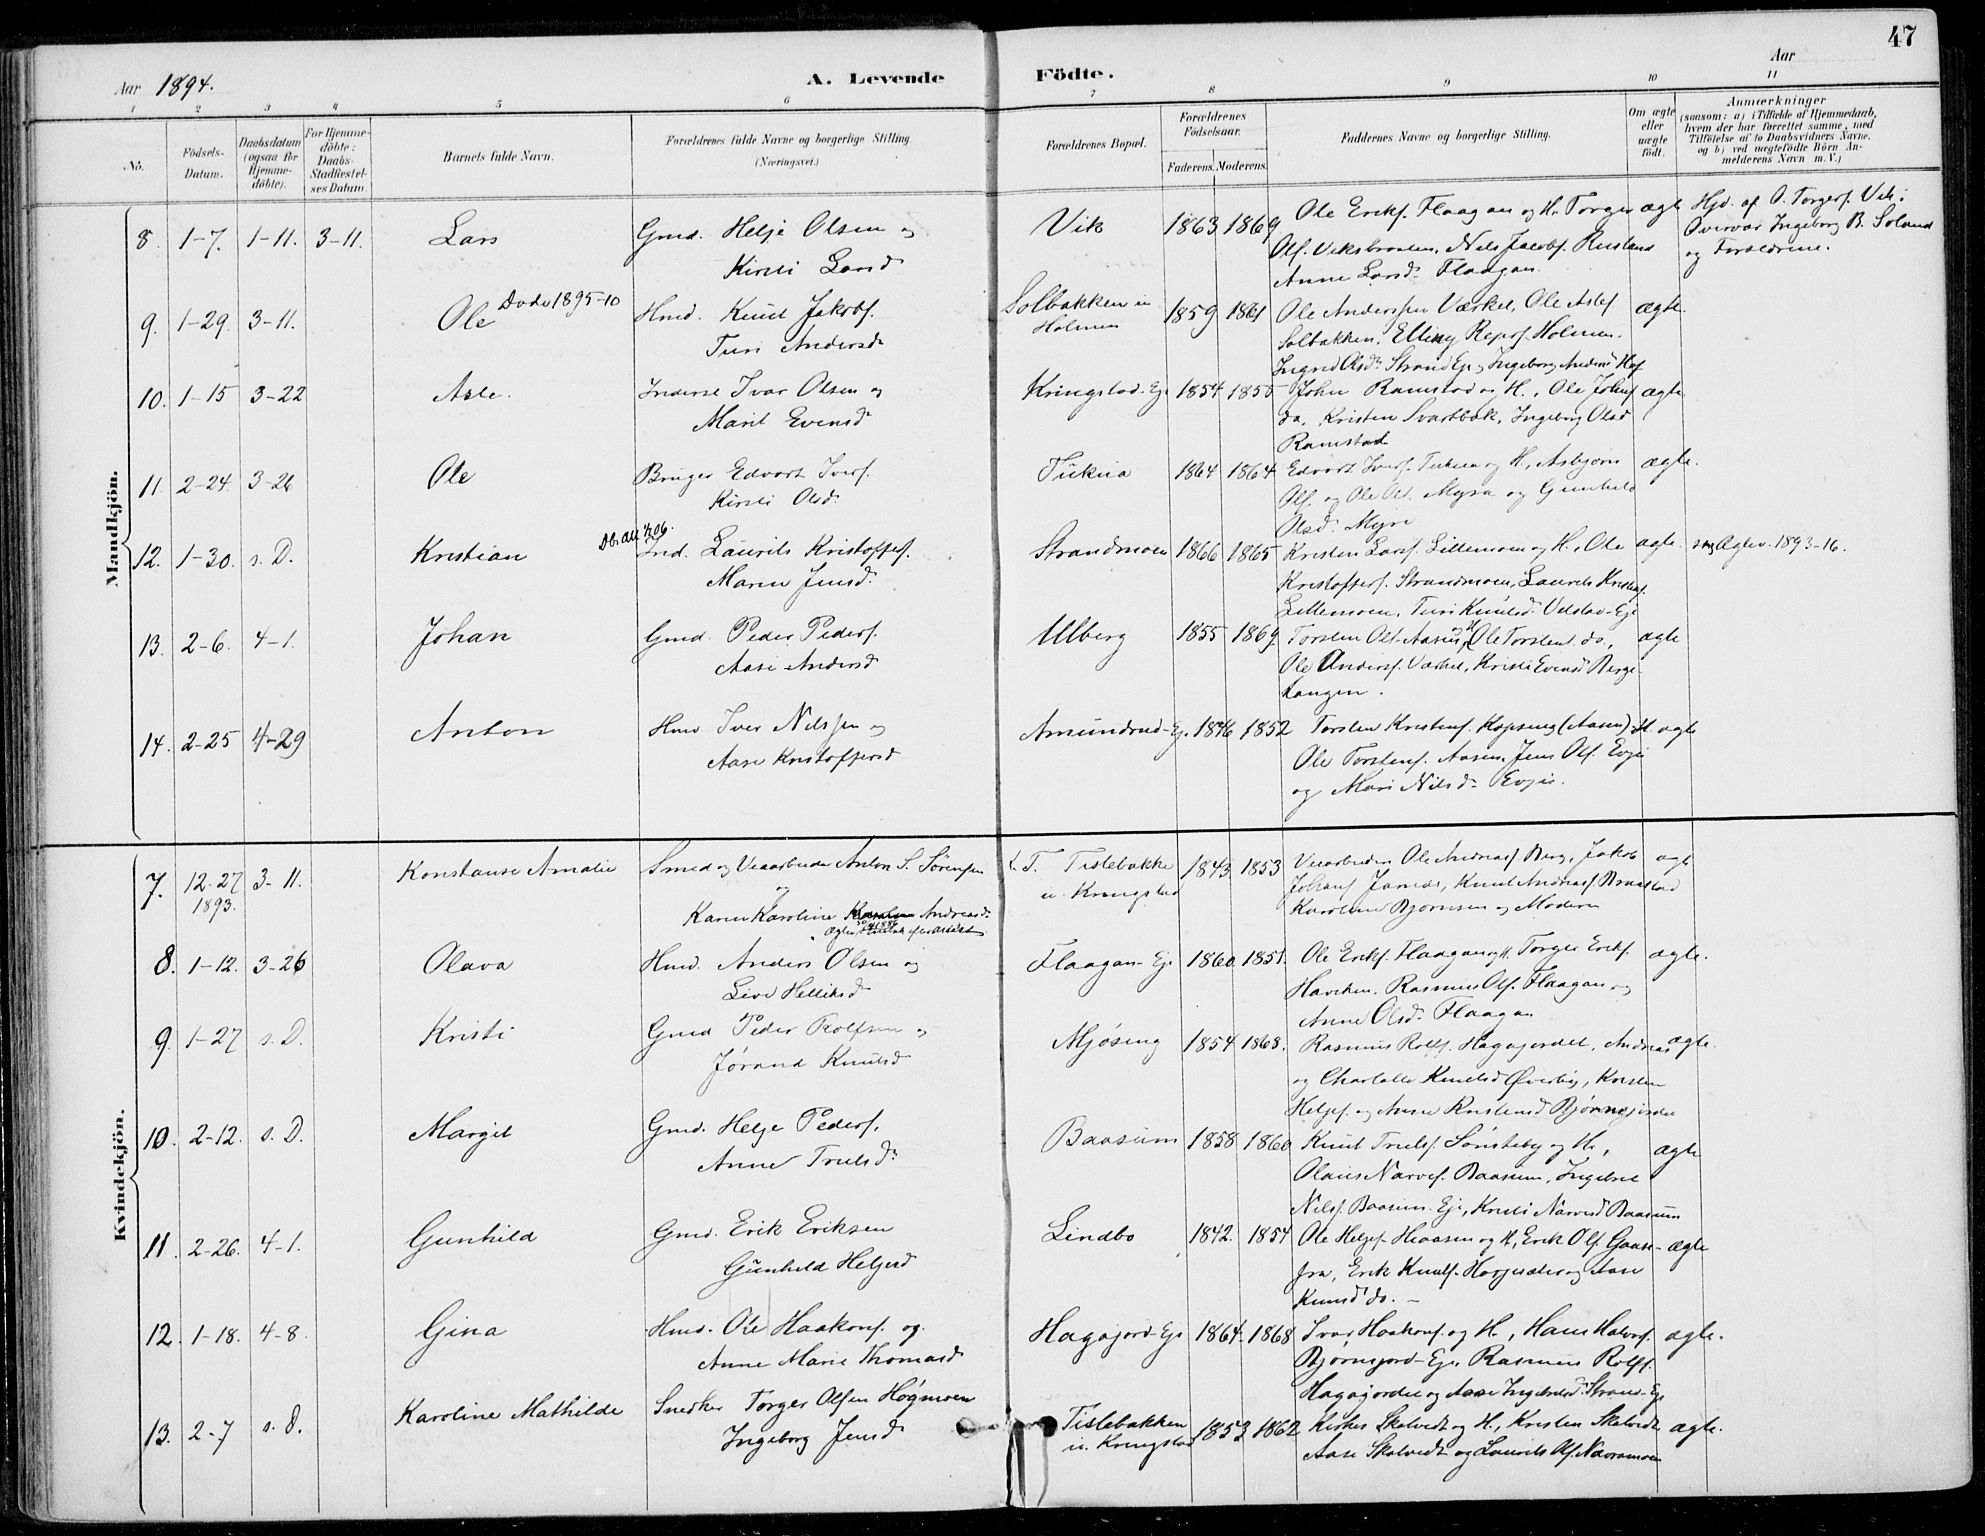 47
Aar 1894.
A. Levende Födte.
Aar
1 2 3 4 5 6 7 8 9 10 11
No.
Födsels-Datum.
Daabsdatum (ogsaa for Hjemmedöbte).
For Hjemmedöbte: Daabs-Stadfæstelses Datum.
Barnets fulde Navn.
Forældrenes fulde Navne og borgerlige Stilling.
(Næringsvei.)
Forældrenes Bopæl.
Forældrenes Födselsaar.
Faderens. Moderens.
Faddernes Navne og borgerlige Stilling.
Om ægte eller uægte födt.
Anmærkninger
(saasom: a) i Tilfælde af Hjemmedaab, hvem der har forrettet samme, med Tilföielse af to Daabsvidners Navne. og b) ved uægtefödte Börn Anmelderens Navn m. V.)
Mandkjön.
8. 1-7. 1-11. 3-11. Lars
Gmd. Helje Olsen og
Kirsti Larsd
Vik 1863 1869
Ole Eriksf. Flaagan og H. Torger
Olf. Viksbraaten, Nils Jacobsf. Rusland
Anne Larsd. Flaagan
ægte
Hjd. af O. Torgersf. Vik.
Overvar Ingeborg B. Soland
og Forældrene.
9. 1-29. 3-11. Ole Døde 1895-10
Hmd. Knud Jakobsf.
Turi Andersd
Solbakken u Holmen 1859 1861
Ole Anderssen Værket, Ole Aslef
Solbakken, Elling Repsf. Holmen.
Ingrid Olsd. Strand Eje, Ingeborg Andersd Hof
ægte.
10. 1-15 3-22 Asle.
Inderst Ivar Olsen og
Marit Evensd
Kringstad-Eje 1854 1855
John Ramstad og H., Ole Johnsf
do, Kristen Svartbæk, Ingeborg Olsd
Ramstad
ægte
11. 2-24. 3-26 Ole
Bruger Edvart Iversf.
Kirsti Olsd.
Tukua 1864 1864
Edvart Iversf. Tukua og H., Asbjørn
Olf. og Ole Olf. Myra og Gunhild
Olsd. Myre
ægte.
12. 1-30. s. D. Kristian
Ind. Laurits Kristoffersf.
Maren Jensd.
Strandmoen 1866 1865
Kristen Larsf. Lillemoen og H., Ole
Kristoffersf. Strandmoen, Laurits Kristensf.
Lillemoen, Turi Knutsd. Vilstad-Eje
ægte.
Ægtev. 1893-16.
13. 2-6. 4-1. Johan
Gmd. Peder Pedersf.
Aase Andersd
Ulberg 1855 1869
Torsten Olf. Aasen og H, Ole Torstensf. do,
Ole Andersf. Værket, Kristi Evensd Berge-
tangen.
ægte
14. 2-25 4-29 Anton
Hmd Iver Nilssen og
Aase Kristoffersd
Amundrud-Ej. 1846 1852
Torsten Kristensf. Kopseng (Aasen) H
Ole Torstensf. Aasen, Jens Olf. Evje
og Mari Nilsd. Evje.
ægte
Kvindekjön.
7. 12-27 1893. 3-11. Konstanse Amalie
Smed og Veiarbeider Anton S. Sørensen
og
Karen Karoline Andreasd.
L. T. Tislebakke u. Kringstad 1843. 1853
Veiarbeider Ole Andreasf. Berg, Jakob
Johansf Jarnæs, Knut Andreasf. Braastad
Karoline Bjørnsen og Moderen
ægte
8. 1-12. 3-26 Olava
Hmd. Anders Olsen og
Live Helliksd
Flaagan-Eje 1860 1851.
Ole Eriksf. Flaagan og H. Torger Eriksf.
Haviken. Rasmus Olf. Flaagan og
Anne Olsd. Flaagan
ægte.
9. 1-27 s. D. Kristi
Gmd Peder Rolfsen og
Jørand Knutsd
Mjøseng 1854 1868.
Rasmus Rolfsf. Hagajordet, Andreas
og Charlotte Knutsd Øverby, Kristen
Heljesf. og Anne Kristensd Bjørnejordet
ægte.
10. 2-12. s. D. Margit
Gmd. Helje Pedersf.
Anne Trulsd.
Baasum 1858 1860
Knut Trulsf. Sønsteby og H.,
Olaus Narvesf. Baasum, Ingebret
Nilsf. Baasum-Eje, Kristi Narvesd Baasum
ægte
11. 2-26. 4-1. Gunhild
Gmd. Erik Eriksen
Gunhild Heljesd
Lindbo 1842. 1854
Ole Heljesf. Heaasen og H, Erik Olf. Gaase-
fra, Erik Knutsf. Horjesæter og Aase
Knutsd do.
ægte
12. 1-18. 4-8. Gina
Hmd. Ole Haakonsf. og
Anne Marie Thomasd
Hagajord-Eje 1864. 1868
Ivar Haakonsf. og H., Hans Halvorsf.
Bjørnejord-Eje, Rasmus Rolfsf.
Hagajordet og Aase Ingebretsd Strand-Eje
ægte.
13. 2-7 s. D. Karoline Mathilde
Snedker Torger Olsen Høgmoen
Ingeborg Jensd
Tislebakken u. Kringstad 1853 1862
Kirker Skalvedt og H., Kristen Skalvedt
Aase Skalvedt og Laurits Olf. Navramoen
ægte.